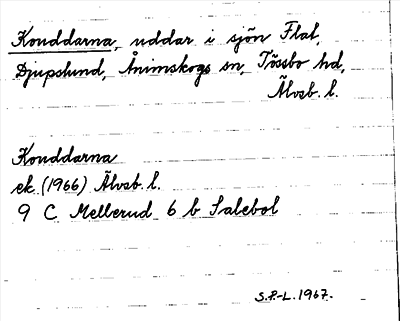 Kouddarna, uddar i sjön Flat,
Djupslund, Ånimskogs sn, Tössbo hd,
Älvsb. l.
Kouddarna
ek. (1966) Älvsb. l.
9 C Mellerud 6 b Salebol
S.P.-L. 1967.